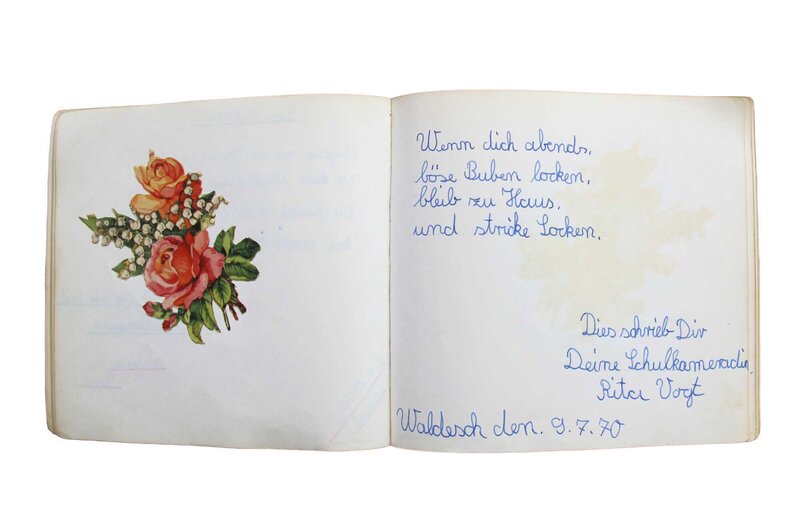 Wenn dich abends,
böse Buben locken,
bleib zu Haus,
und stricke Socken.
Dies schrieb Dir
Deine Schulkameradin,
Rita Vogt
Waldesch den. 9.7.70